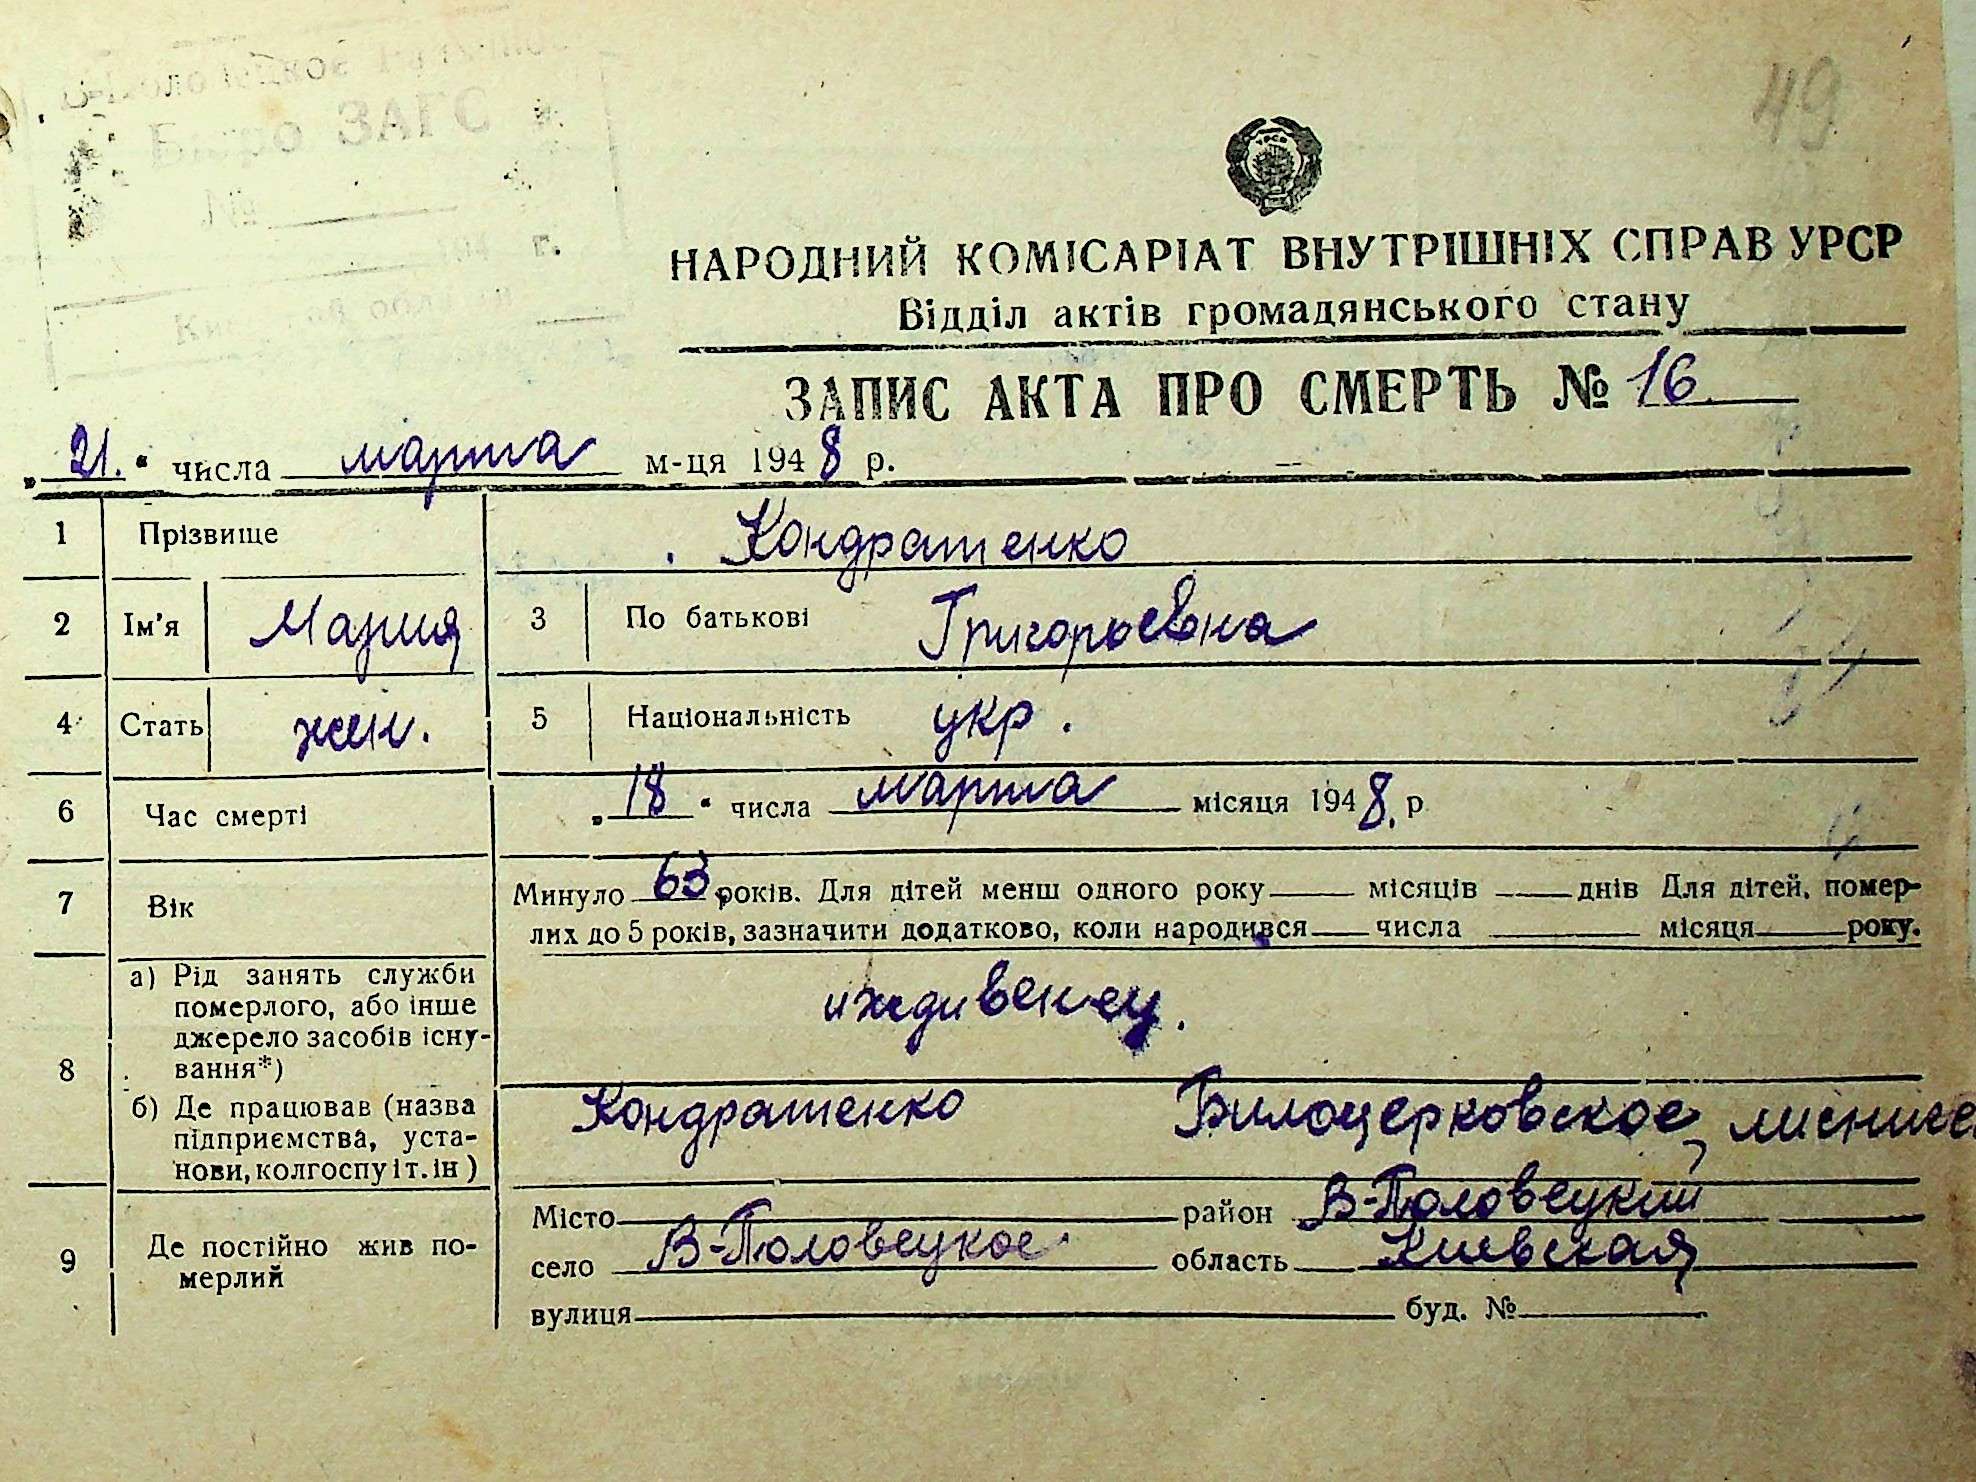 Бюро ЗАГС
194 г.
49
НАРОДНИЙ КОМІСАРІАТ ВНУТРІШНІХ СПРАВ УРСР
Відділ актів громадянського стану
ЗАПИС АКТА ПРО СМЕРТЬ № 16.
„21.“ числа марта м-ця 1948 р.
1 Прізвище Кондратенко
2 Ім'я Мария 3 По батькові Григорьевна
4 Стать жен. 5 Національність укр.
6 Час смерті „18“ числа марта місяця 1948. р
7 Вік Минуло 63 років. Для дітей менш одного року місяців днів Для дітей, помер-
лих до 5 років, зазначити додатково, коли народився числа місяця року.
8 а) Рід занять служби
померлого, або інше
джерело засобів існу-
вання*)
иждивенец.
б) Де працював (назва
підприємства, уста-
нови, колгоспу і т. ін)
Кондратенко Билоцерковское
9 Де постійно жив по-
мерлий
Місто район В-Половецкий
село В-Половецкое область Киевская
вулиця буд. №